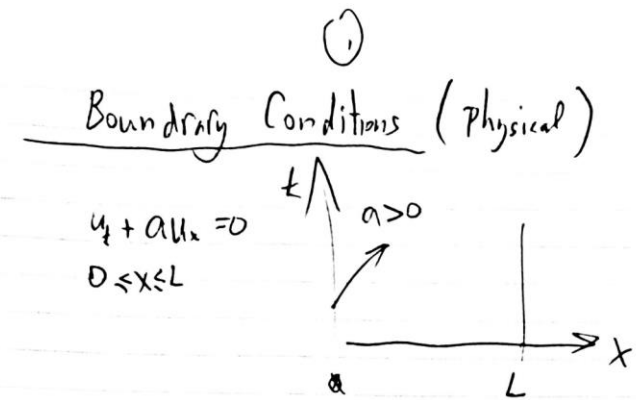 ①
Boundrary Conditions (Physical)
t
a>0
u_t + au_x = 0
0 ≤ x ≤ L
x
L